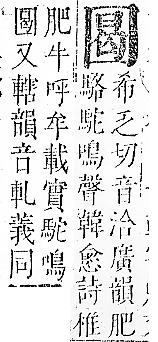 希乏切音洽廣韻肥
駱駝鳴聲韓愈詩椎
肥牛呼牟載實駝鳴
圔又轄韻音軋義同